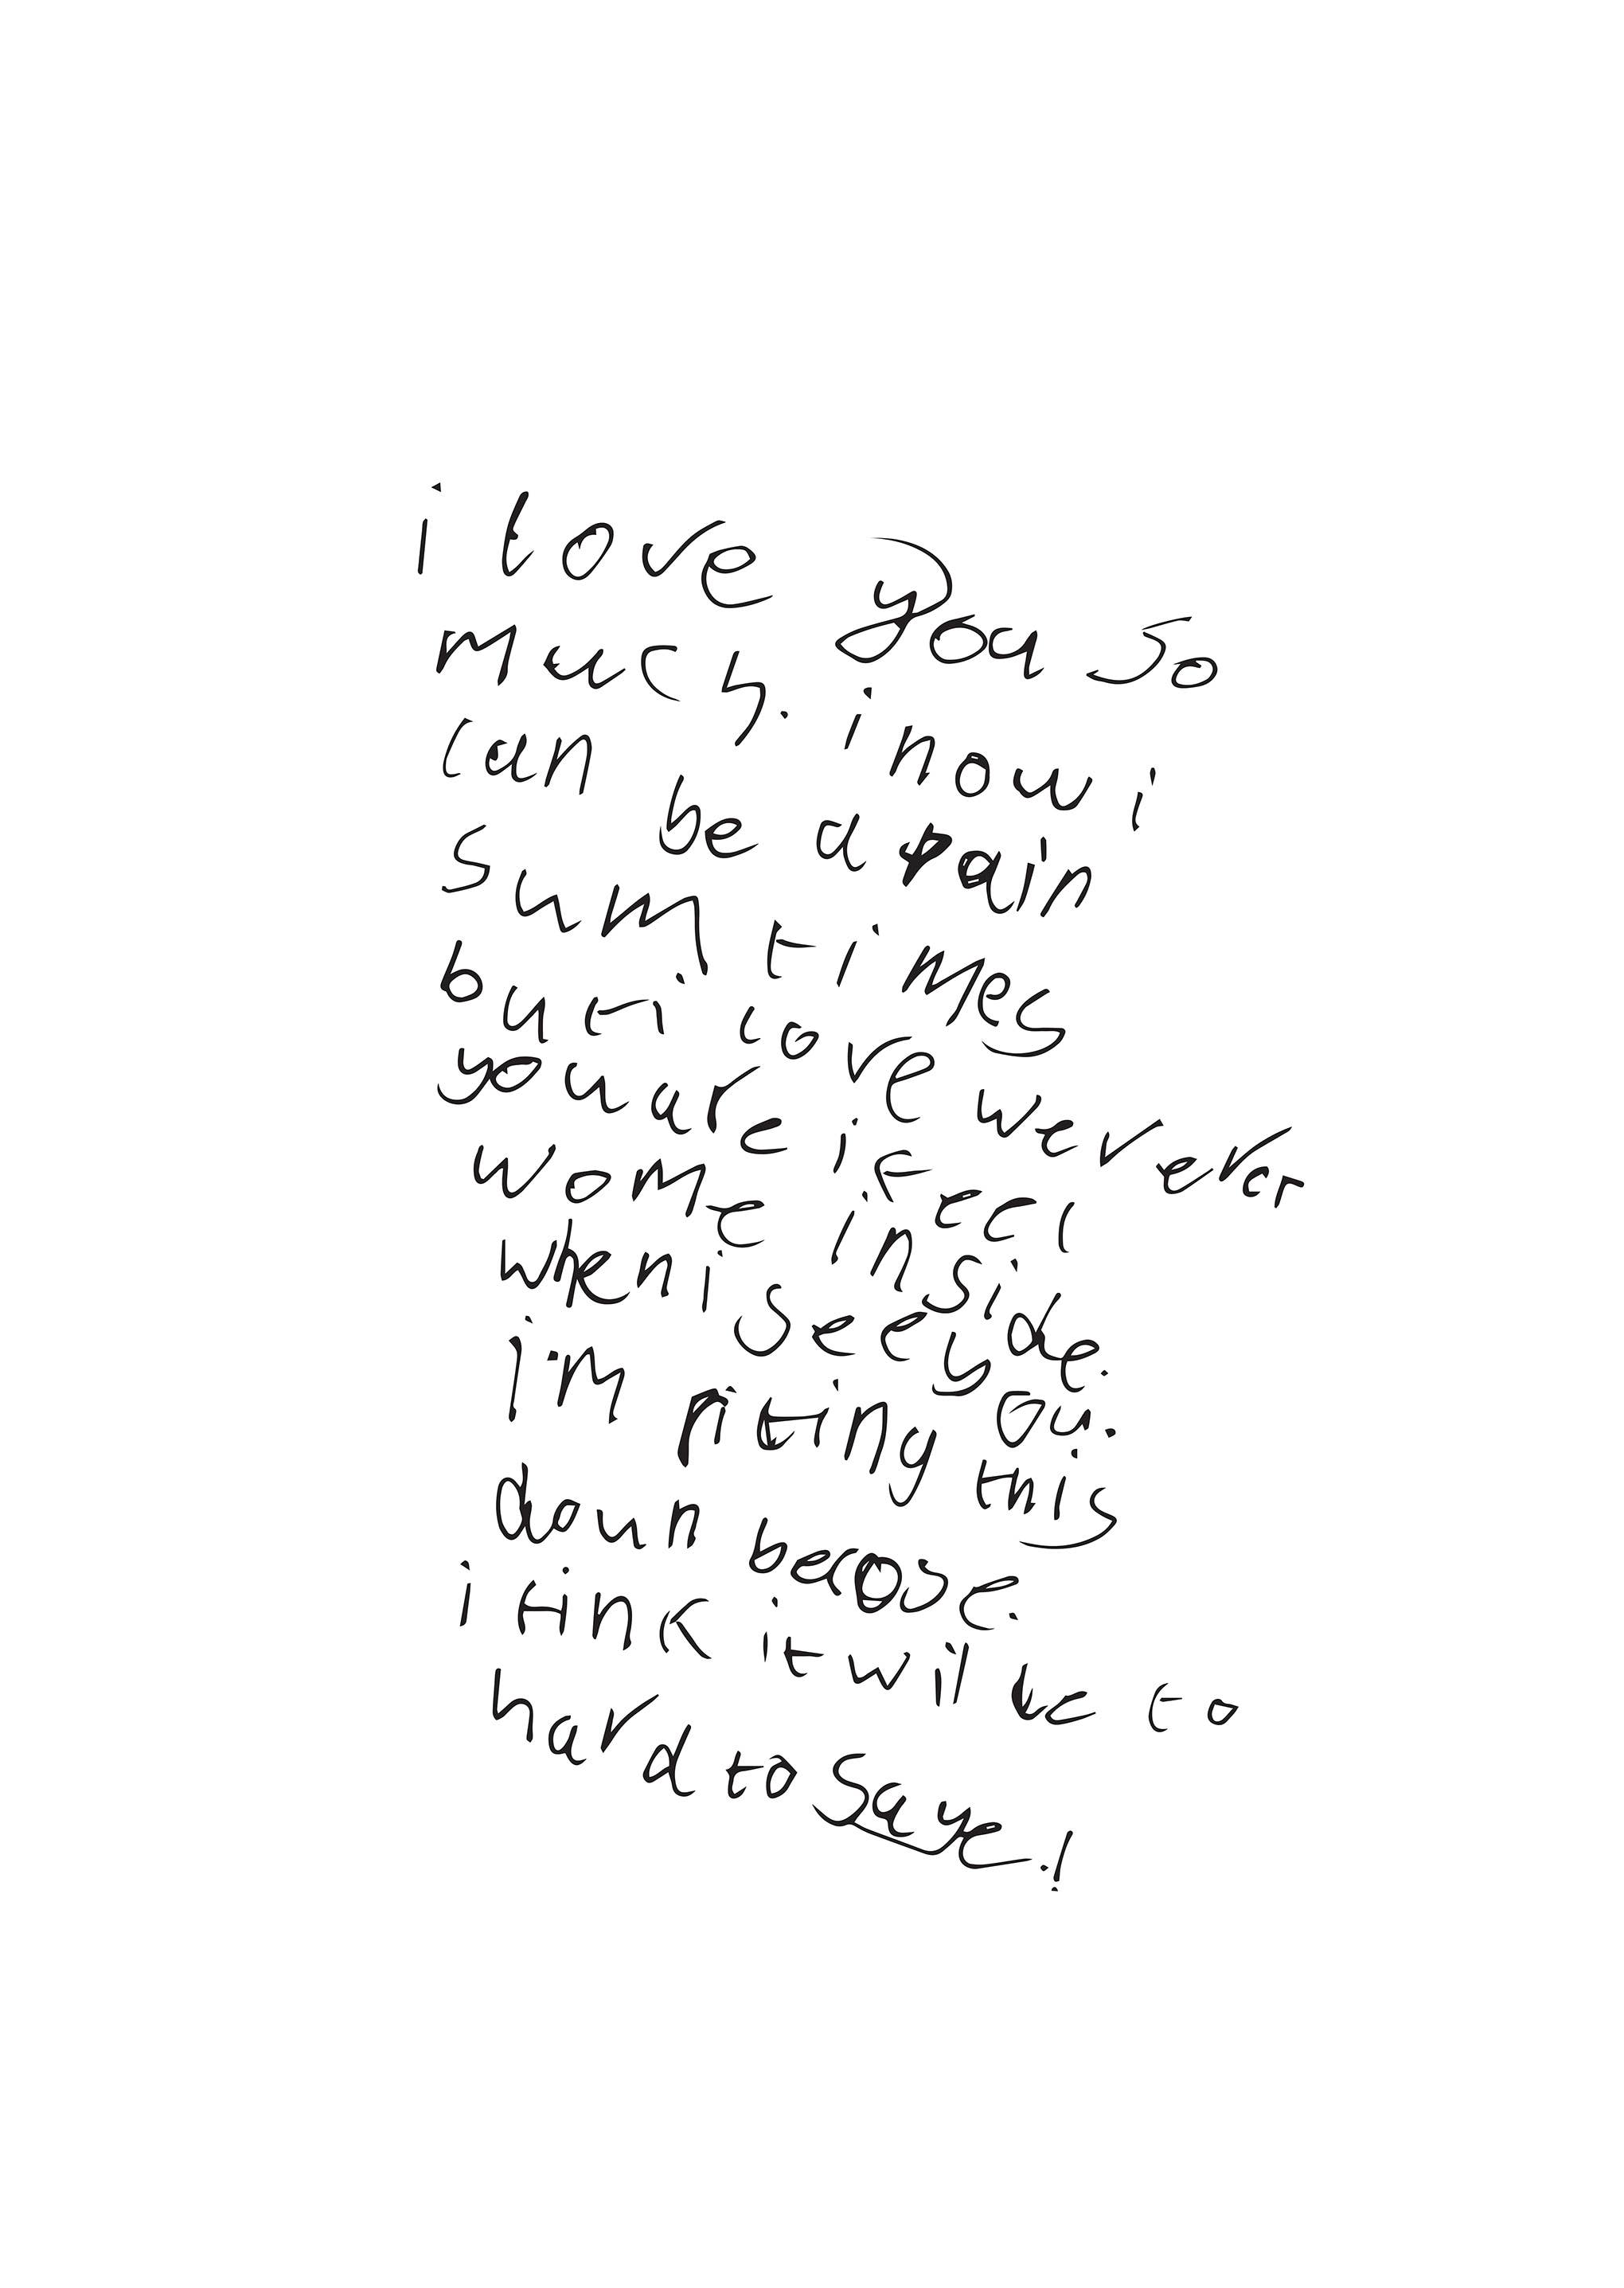 i love you so
much. i now i
can be a pain
sumtimes
but i love
you are if weverer
wome i feel
when i see inside.
i'm riting you.
down this
i tink becose.
it wil be to
hard to saye.!